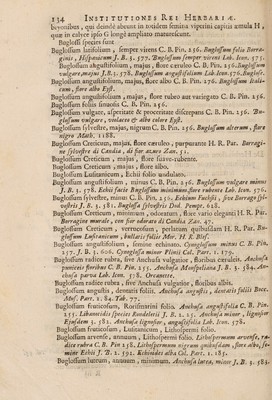 134 INSTITUTIONES REI HERBARIÆ.
beyonibus, qui deinde abeunt in totidem semina viperini capitis æmula H,
quæ in calyce ipso G longè ampliato maturescunt.
Buglossi species sunt
Buglossum latifolium, semper virens C. B. Pin. 256. Buglossum folio Borra-
ginis, Hispanicum J. B. 3. 577. Buglossum semper virens Lob. Icon. 575.
Buglossum angustifolium, majus, flore cæruleo C. B. Pin. 256. Buglossum
vulgare, majus J. B. 3. 578. Buglossum angustifolium Lob. Icon. 576. Buglosse.
Buglossum angustifolium, majus, flore albo C. B. Pin. 256. Buglossum Itali-
cum, flore albo Eyst.
Buglossum angustifolium, majus, flore rubro aut variegato C. B. Pin. 256.
Buglossum foliis sinuosis C. B. Pin. 256.
Buglossum vulgare, asperitate & procerirate discrepans C. B. Pin. 256. Bu-
glossum vulgare, violaceo & albo rubens Eyst.
Buglossum sylvestre, majus, nigrum C. B. Pin. 256. Buglossum alterum, flore
nigro March. 1188.
Buglossum Creticum, majus, flore cæruleo, purpurante H. R. Par. Borragi-
ne silvestre di Candia, di far azuro Zan. 52.
Buglossum Creticum, majus, flore suave-rubente.
Buglossum Creticum, majus, flore albo.
Buglossum Lusitanicum, Echii folio undulato.
Buglossum angustifolium, minus C. B. Pin. 256. Buglossum vulgare minus
J. B. 3. 578. Echii facie Buglossum minimum, flore rubente Lob. Icon. 576.
Buglossum sylvestre, minus C. B. Pin. 256. Echium Fuchsii, sive Borrago syl-
vestris J. B. 3. 581. Buglossa sylvestris Dod. Pempt. 628.
Buglossum Creticum, minimum, odoratum, flore vario eleganti H. R. Par.
Borragine murale, con fior odorato di Candia Zan. 47.
Buglossum Creticum, verrucosum, perlatum quibusdam H. R. Par. Bu-
glossum Lusitanicum, bullatis foliis Mor. H. R. Blef.
Buglossum angustifolium, semine echinato. Cynoglossum minus C. B. Pin.
257. J. B. 3. 600. Cynoglossa minor Plinii Col. Part. 1. 179.
Buglossum radice rubra, sive Anchusa vulgatior, floribus cæruleis. Anchusa
puniceis floribus C. B. Pin. 255. Anchusa Monspeliana J. B. 3. 584. An-
chusa parva Lob. Icon. 578. Orcanette.
Buglossum radice rubra, sive Anchusa vulgatior, floribus albis.
Buglossum angustis, dentatis foliis. Anchusa angustis, dentatis foliis Bocc.
Mus. Part. 2. 84. Tab. 77.
Buglossum fruticosum, Rorismarini folio. Anchusa angustifolia C. B. Pin.
255. Libanotidis species Rondeletii J. B. 1. 25. Anchusa minor, lignosior
Ejusdem 3. 581. Anchusa lignosior, angustifolia Lob. Icon. 578.
Buglossum fruticosum Lusitanicum, Lithospermi folio.
Buglossum arvense, annuum, Lithospermi folio. Lithospermum arvense, ra-
dice rubra C. B. Pin. 258. Lithospermum nigrum quibusdam, flore albo, se-
mine Echii J. B. 2. 592. Echioides alba Col. Part. 1. 185.
Buglossum luteum, annuum, minimum. Anchusa lutea, minor J. B. 3. 583.